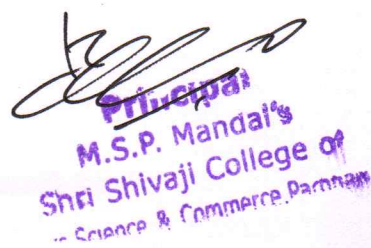 Principal
M.S.P. Mandal's
Shri Shivaji College of
Science & Commerce, Parbhani